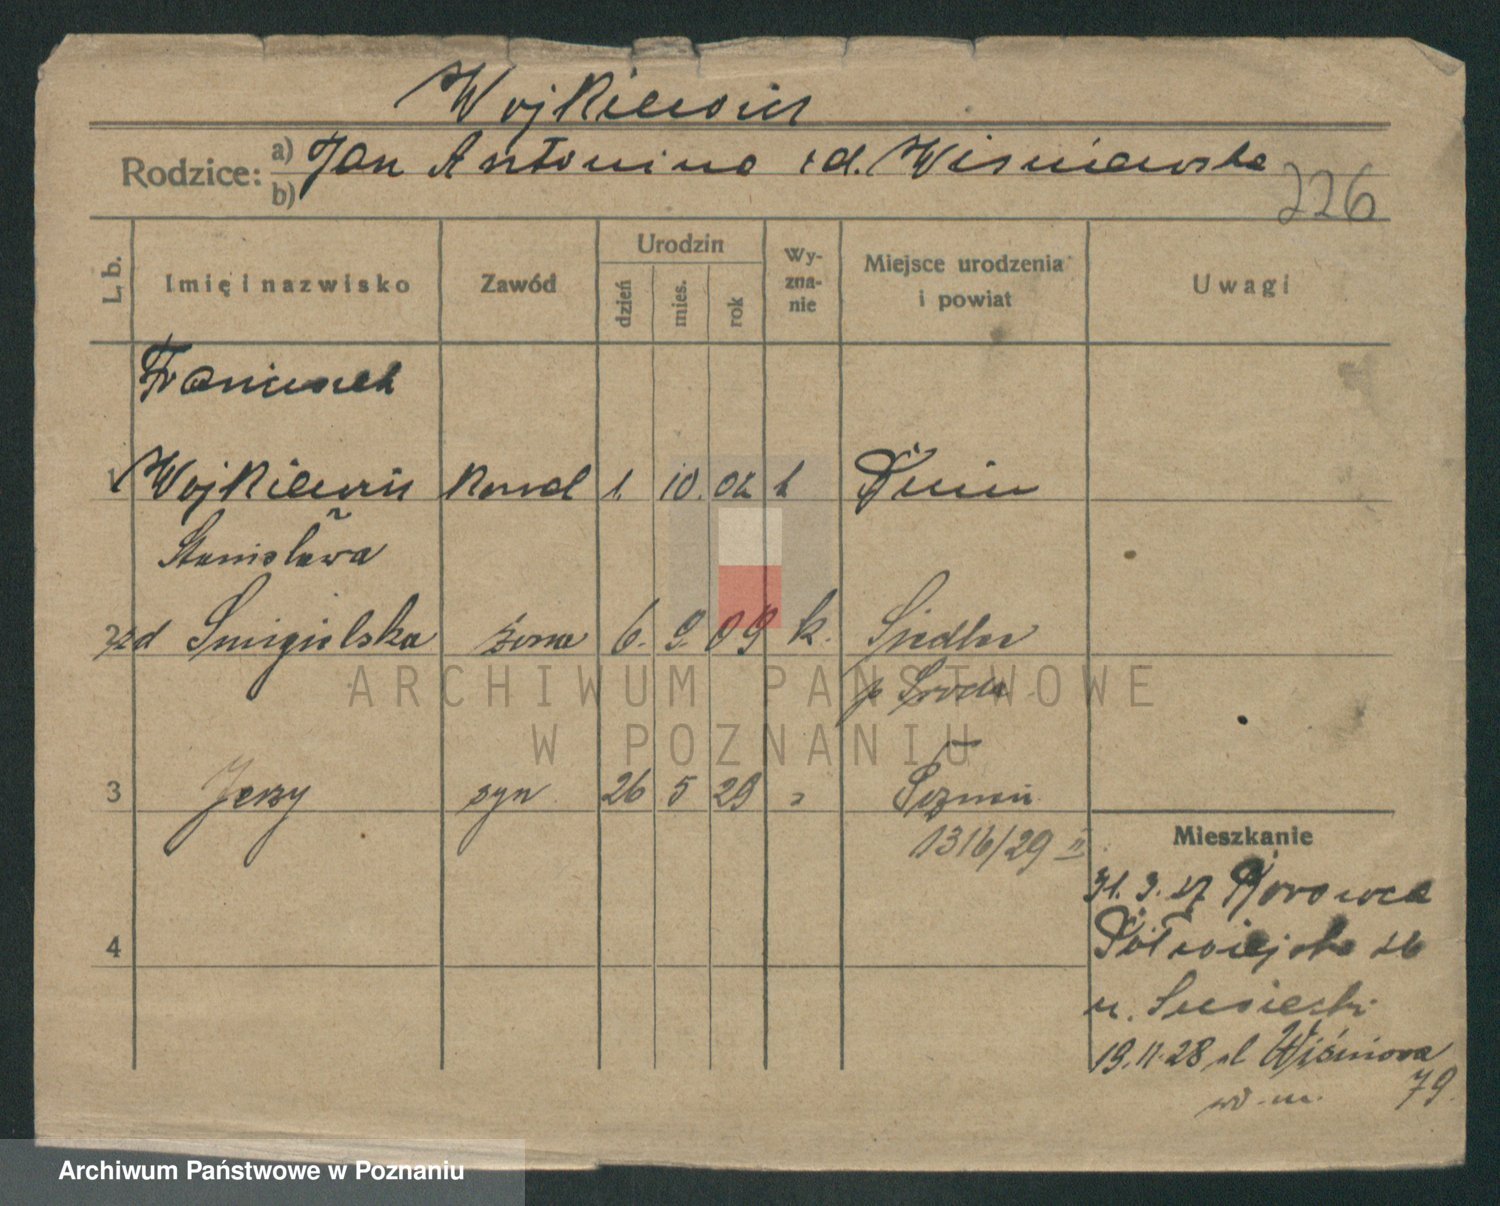 Wojkiewicz
Rodzice: a) Jan Antonina zd. Wiśniewska
b)
226
L. b. Imię i nazwisko Zawód Urodzin dzień mies. rok Wyznanie Miejsce urodzenia i powiat Uwagi
Franciszek
1 Wojkiewicz kowal 1. 10. 02 k
Stanisława
2 zd Smigielska żona 6. 9. 09 k. Siedlec
p Sroda
3 Jerzy syn 26 5 29 " Poznań
1316/29 II
Mieszkanie
31. 3. 27
4
Półwiejska 26
u.
19. 11. 28 ul Wiśniowa
79.
ARCHIWUM PAŃSTWOWE
W POZNANIU
Archiwum Państwowe w Poznaniu